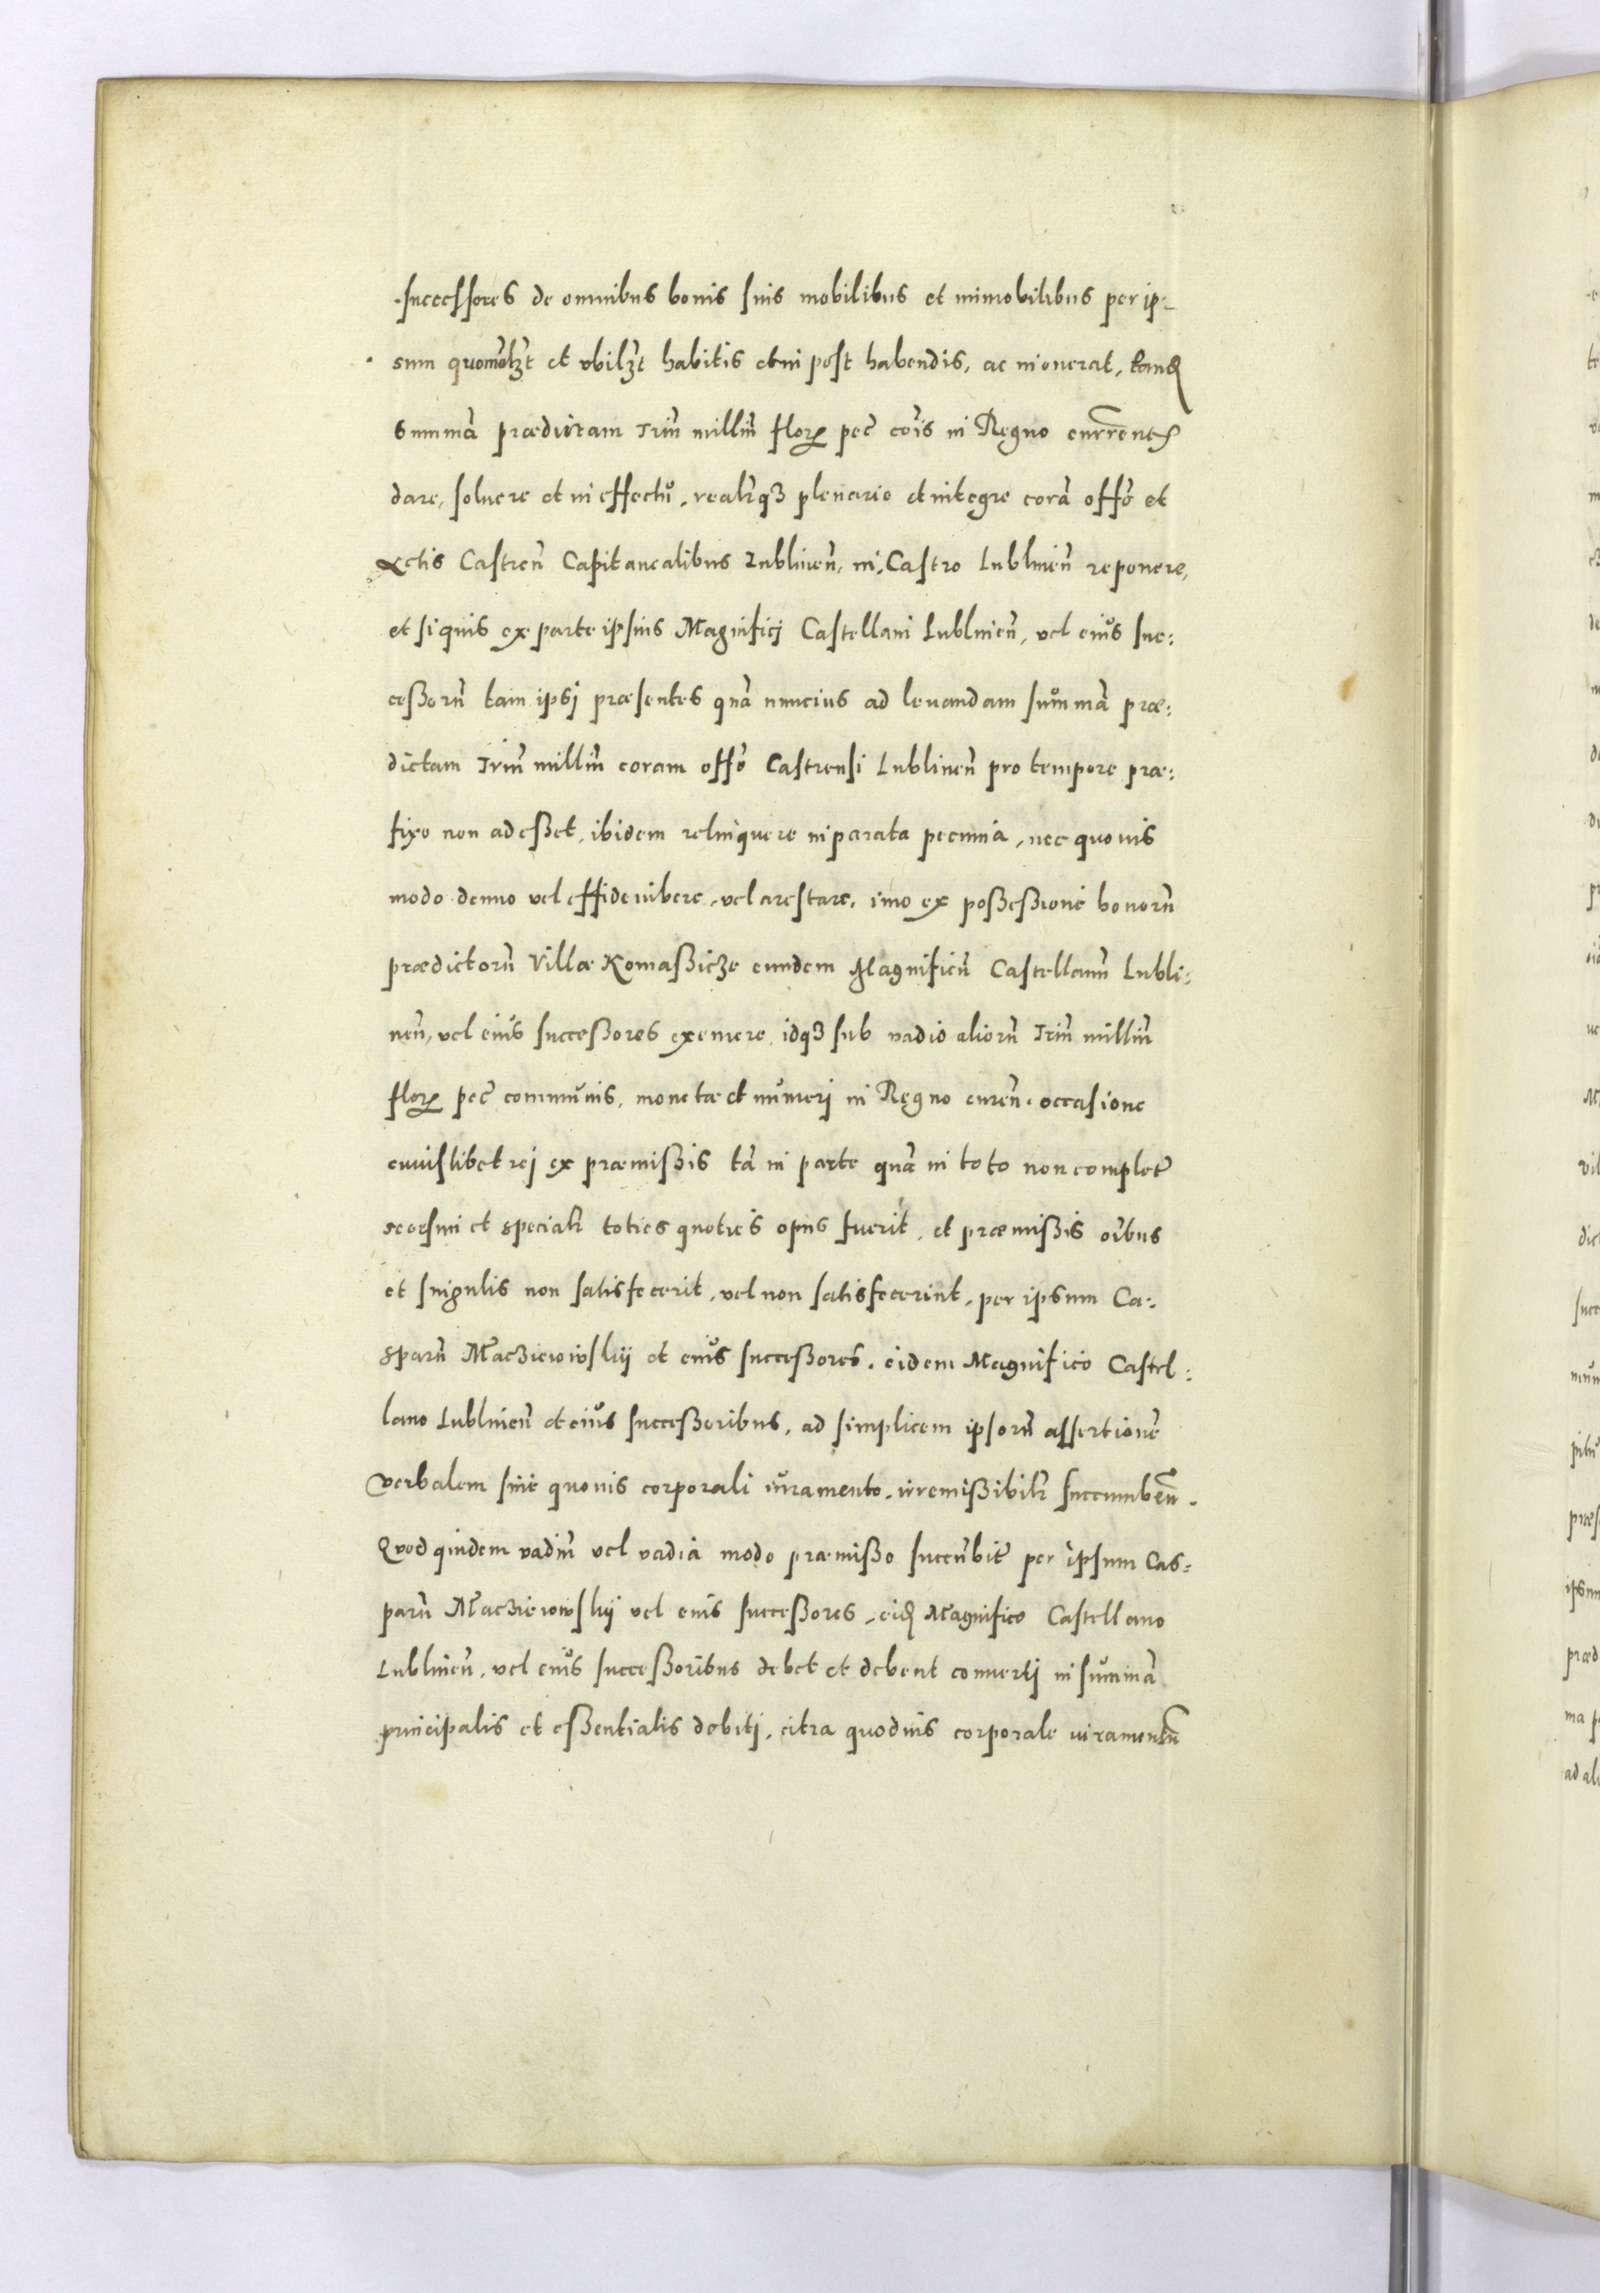 successores de omnibus bonis suis mobilibus et immobilibus per ip-
sum quomōlʒt et vbilʒt habitis et in post habendis, ac inonerat, eand
summā prædictam Triū milliū florꝝ pec̄ cōis in Regno currēnt
dare, soluere et in effectu, realr̄qʒ plenarie et integre corā offō et
Actis Castren̄ Capitanealibus Lublinen̄, in Castro Lublinen̄ reponere,
et si quis ex parte ipsius Magnificj Castellani Lublinen̄, vel eius suc:
ceßorū tam ipsj præsentes quā nuncius ad leuandam summā præ:
dictam Triū milliū coram offō Castrensi Lublinen̄ pro tempore præ:
fixo non adeßet, ibidem relinquere in parata pecunia, nec quouis
modo denuo vel effidenibere, vel arestare, imo ex poßeßione bonorū
prædictorū Villæ Komaßicze eundem Magnificū Castellanū Lubli:
nen̄, vel eius succeßores eximere, idqʒ sub vadio aliorū Triū milliū
florꝝ pec̄ communis, monetæ et numerj in Regno curen̄. occasione
cuiuslibet rej ex præmißis tā in parte quā in toto non complet̄
seorsim et specialr̄ toties quoties opus fuerit, et præmißis oībus
et singulis non satisfecerit, vel non satisfecerint, per ipsum Ca:
sparū Macziewowskij et eius succeßores. eidem Magnifico Castel:
lano Lublinen̄ et eius succeßoribus, ad simplicem ipsorū assertionē
verbalem sine quouis corporali iuramento, irremißibilr̄ succumbēn.
Quod quidem vadiū vel vadia modo præmißo succūbit̄ per ipsum Cas:
parū Macziewowskij vel eius succeßores, eid Magnifico Castellano
Lublinen̄, vel eius succeßoribus debet et debent conuertj in summā
principalis et eßentialis debitj, citra quoduis corporale iuramentū